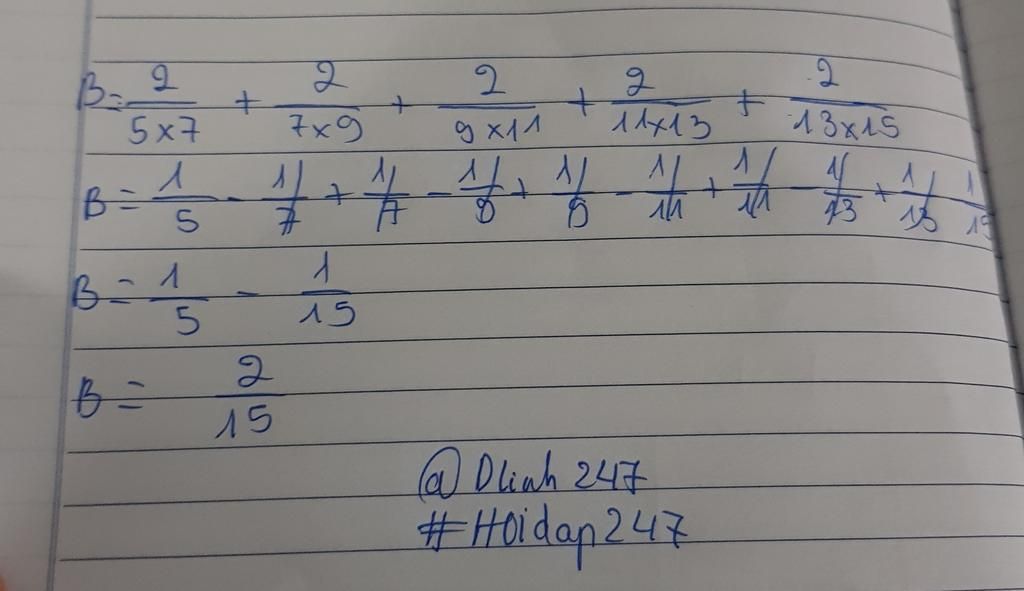 B = 2/5×7 + 2/7×9 + 2/9×11 + 2/11×13 + 2/13×15
B = 1/5 - 1/7 + 1/7 - 1/9 + 1/9 - 1/11 + 1/11 - 1/13 + 1/13 1/15
B = 1/5 - 1/15
B = 2/15
@Dlinh247
#Hoidap247